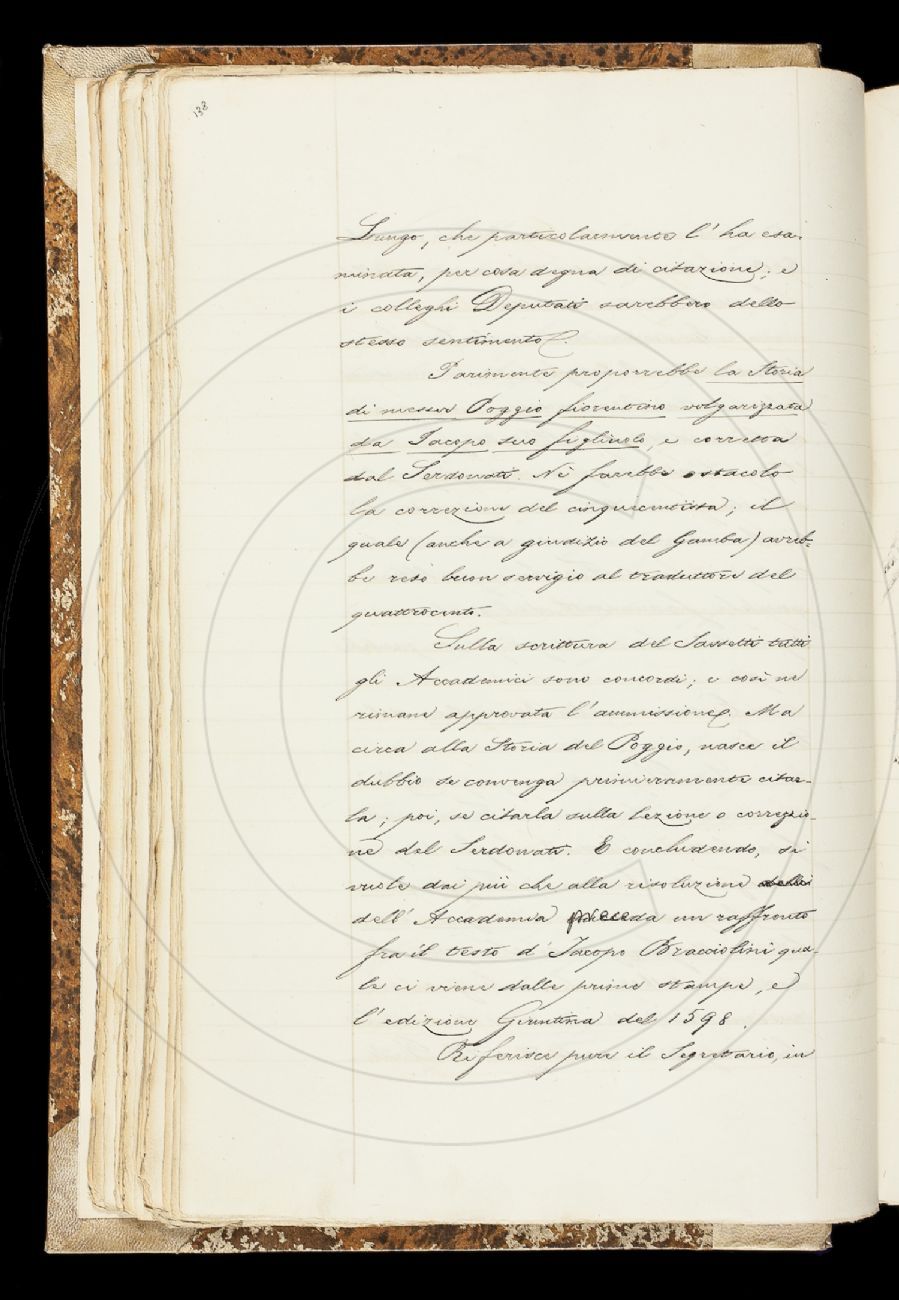 138
Lungo, che particolarmente l'ha esa-
minata, per cosa degna di citazione; e
i colleghi Deputati sarebbero dello
stesso sentimento.
Parimente proporrebbe la Storia
di messer Poggio fiorentino volgarizzata
da Jacopo suo figliuolo, e corretta
dal Serdonati. Nè farebbe ostacolo
la correzione del cinquecentista; il
quale (anche a giudizio del Gamba) avreb-
be reso buon servigio al traduttore del
quattrocento.
Sulla scrittura del Sassetti tutti
gli Accademici sono concordi; e così ne
rimane approvata l'ammissione. Ma
circa alla Storia del Poggio, nasce il
dubbio se convenga primieramente citar-
la; poi, se citarla sulla lezione o correzio-
ne del Serdonati. E concludendo, si
vuole dai più che alla risoluzione
dell'Accademia preceda un raffronto
fra il testo d'Jacopo Bracciolini qua-
le ci viene dalle prime stampe, e
l'edizione Giuntina del 1598.
Riferisce pure il Segretario, in